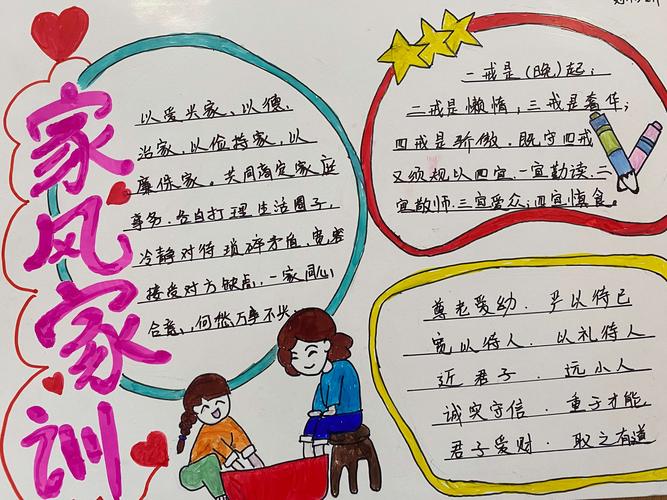 家风家训
以爱兴家、以德、
治家、以俭持家、以
廉保家。共同商定家庭
事务、各自打理生活圈子,
冷静对待琐碎矛盾、宽容
接受对方缺点,一家同心
合意、何愁万事不兴
一戒是(晚)起;
二戒是懒惰,三戒是奢华;
四戒是骄傲.既守四戒
又须规以四宜.一宜勤读.二
宜敬师.三宜爱众;四宜慎食。
尊老爱幼.严以待己
宽以待人.以礼待人
近君子.远小人
诚实守信.重于才能
君子爱财.取之有道